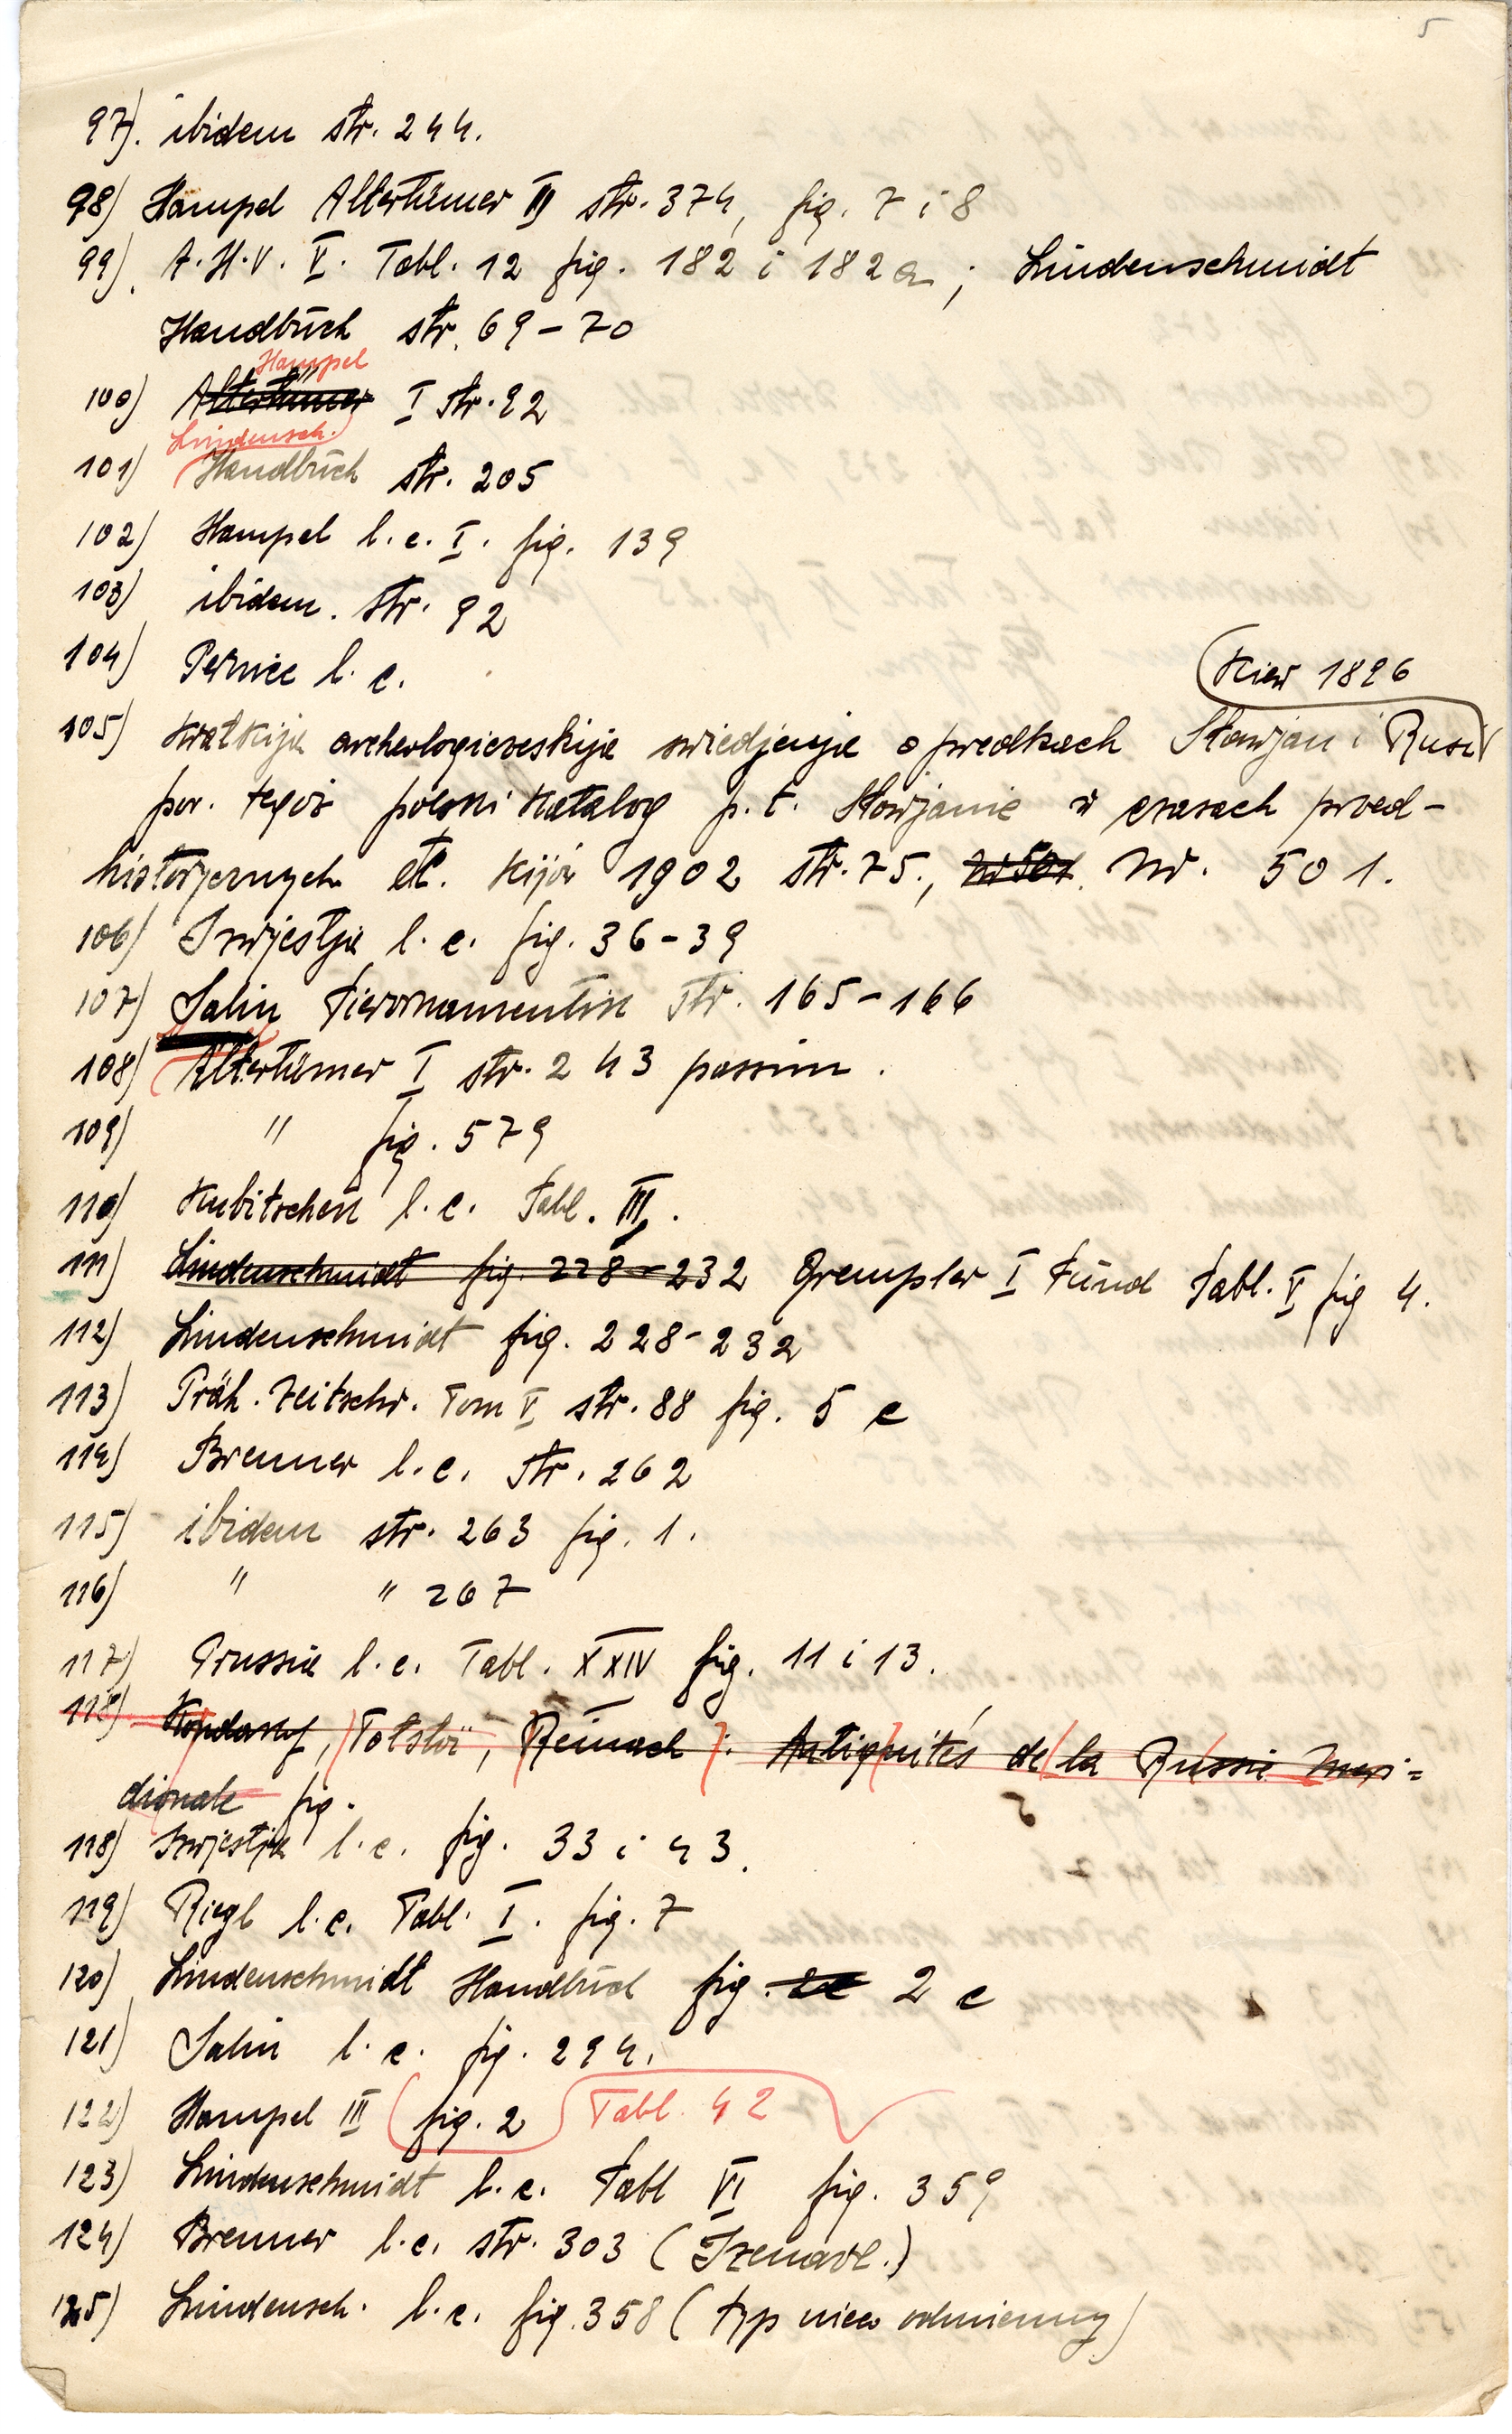 5
97). ibidem str. 244.
98) Hampel Altertümer III str. 374, fig. 7 i 8
99). A.H.V. V. Tabl. 12 fig. 182 i 182a; Lindenschmidt
Handbuch str. 69-70
Hampel
100) Altertümer I str. 92
Lindensch.
101) Handbuch str. 205
102) Hampel l.c. I. fig. 139
103) ibidem. str. 92
104) Pernice l. c.
Kiew 1896
105) Kratkija archeologiczeskija swiedjenja o predkach Słowjan i Rusi
por. tegoż polski katalog p.t. Słowjanie w czasach przed-
historycznych etc. Kijów 1902 str. 75., Nr 501. Nr. 501.
106) Izwjestja l.c. fig. 36-39
107) Salin Tierornamentik str. 165-166
108) Altertümer I str. 243 passim.
109) " fig. 579
110) Kubitschek l.c. Tabl. III.
111) Lindenschmidt fig. 228-232 Grempler I Fund Tabl. V fig 4.
112) Lindenschmidt fig. 228-232
113) Präh. Zeitschr. Tom V str. 88 fig. 5 c
114) Brenner l.c. str. 262
115) ibidem str. 263 fig. 1.
116) " " 267
117) Prussia l.c. Tabl. XXIV fig. 11 i 13.
118) Kondakof, Tolstoï, Reinach: Antiquités de la Russie meri=
dionale fig.
118) Izwjestja l.c. fig. 33 i 43.
119) Riegl l.c. Tabl. I. fig. 7
120) Lindenschmidt Handbuch fig. 2c 2 c
121) Salin l.c. fig. 294.
122) Hampel III fig. 2 Tabl. 42
123) Lindenschmidt l.c. Tabl VI fig. 359
124) Brenner l.c. str. 303 (Szenarl.)
125) Lindensch. l.c. fig. 358 (typ nieco odmienny)